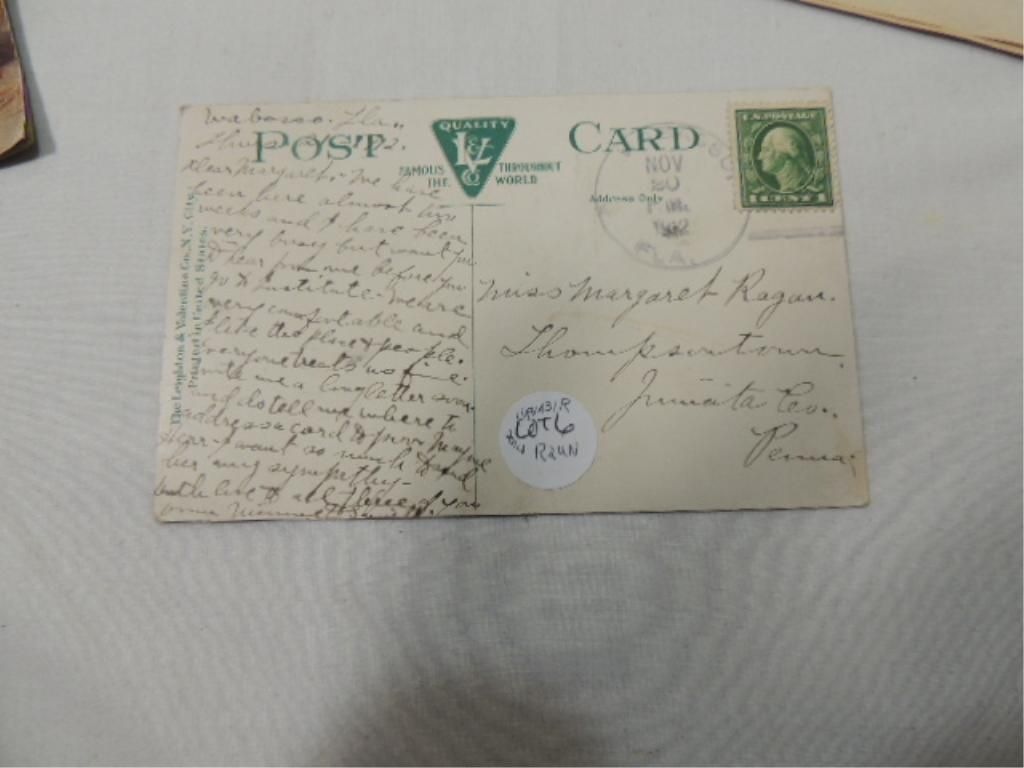 Wabasso. Fla.,
POST CARD
QUALITY
L&V
Co
FAMOUS THROUGHOUT
THE WORLD
Address Only
U.S. POSTAGE
1 CENT 1
NOV
30
P.M.
1912
FLA.
Dear Margaret - We have
been here almost two
weeks and I have been
very busy but want you
to hear from me before you
go to Institute - We are
very comfortable and
like the place & people.
everyone treats us fine.
write me a long letter soon
and do tell me where to
address a card to
I want so much to send
her my sympathy -
with love to all three of you
The Leighton & Valentine Co., N.Y. City.
Printed in United States.
Miss Margaret Ragan.
Thompsontown
Juniata Co.,
Penna.
LOT 6
RAUN